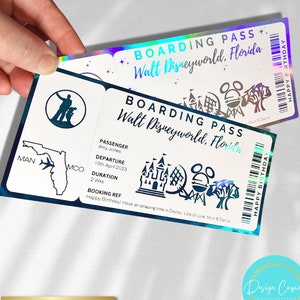 BOARDING PASS
Walt Disneyworld, Florida
HAPPY BIRTHDAY
BOARDING PASS
Walt Disneyworld, Florida
PASSENGER
Amy Jones
DEPARTURE
10th April 2023
DURATION
2 Wks
BOOKING REF
Happy Birthday! Have an amazing time in Disney. Lots of Love, Mum & Dad x
MAN
MCO
HAPPY BIRTHDAY